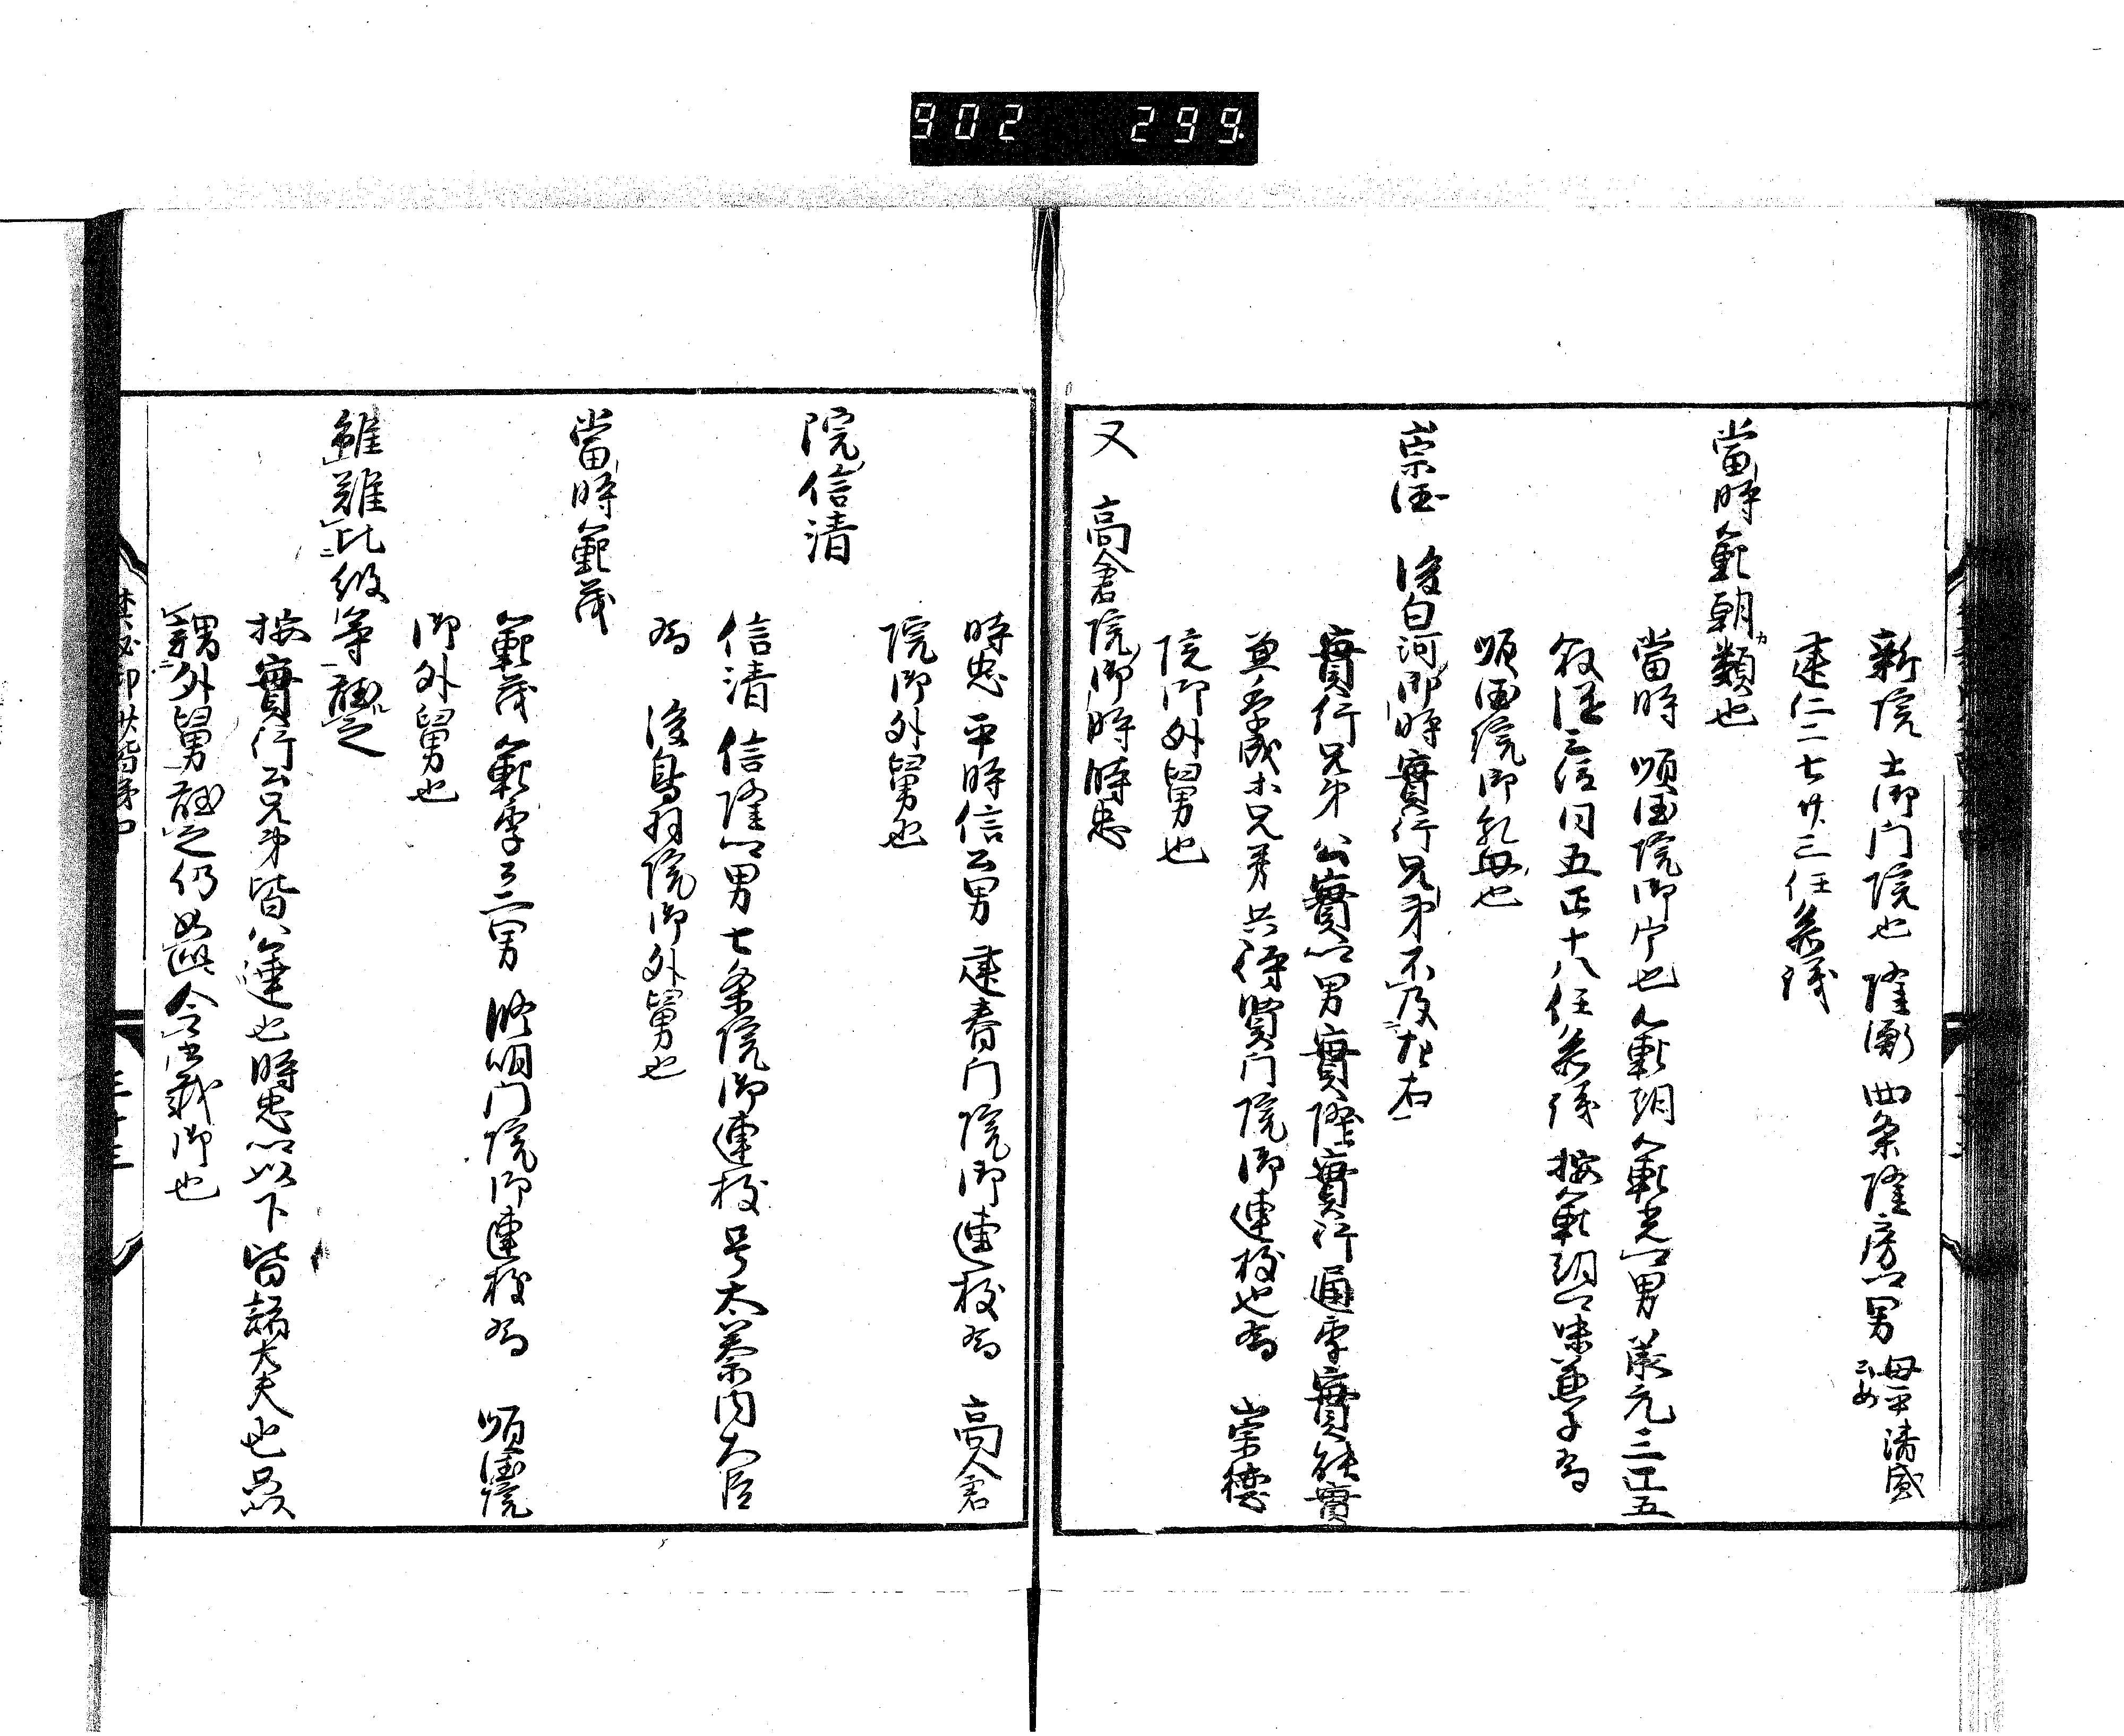 902 299
新院 土御门院也 隆衡 四条隆房卿男 母平清盛公女
建仁二七廿三任参議
當時範朝カ類也
當時 順徳院御宇也 範朝範光卿男 承元三正五
叙従三位同五正十八任参議 按範朝卿妹兼子為
順徳院御乳母也
崇徳 後白河御時實行兄弟不及左右
實行兄弟 公實卿男實隆實行通季實能實
兼季成等兄弟 共待賢门院御連枝也為 崇徳
院御外舅也
又 高倉院御時時忠
時忠 平時信公男 建春门院御連枝為 高倉
院御外舅也
院信清
信清 信隆卿男 七条院御連枝 号太秦内大臣
為 後鳥羽院御外舅也
當時範茂
範茂 範季卿二男 脩明门院御連枝為 順徳院
御外舅也
雖難比彼等聴之
按實行公兄弟皆公達也時忠卿以下皆諸大夫也然
異外舅聴之仍如此令書載御也
三十三